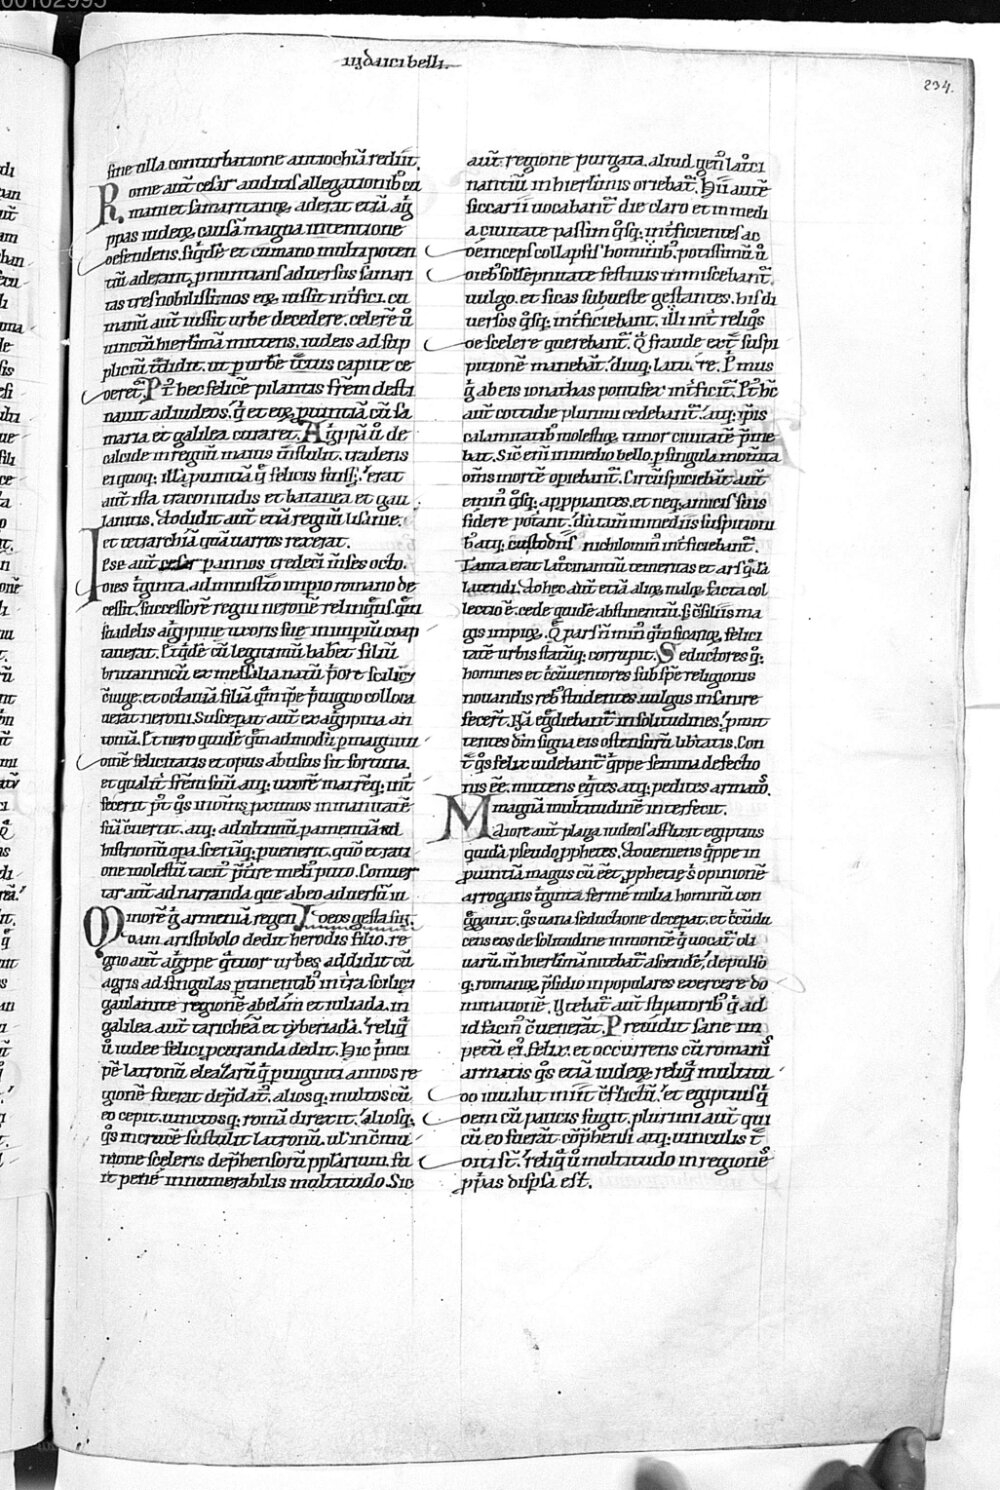 iudaici belli.
234.
sine ulla conturbatione antiochiā rediit.
Rome aut̄ cesar auditis allegationib; cu
mani et samaritanoꝝ, aderat etiā ag̍
ppas iudeoꝝ causā magna intentione
defendens. siq̇dē et cumano multi poten
tū aderant, ꝓnuntians aduersus samari
tas tres nobilissimos eoꝝ iussit int̄fici. cu
manū aut̄ iussit urbe decedere. celerē ů
uinctū hierlimā mittens, iudeis ad sup
pliciū t̄didit. ut ꝑ urbē t̄ctus capite ce
deret. P̄ hec felicē pilantis fr̄em desti
nauit ad iudeos. q̍ et eoꝝ ꝓuintiā cū sa
maria et galilea curaret. Ag̍ppā ů de
calcide in regnū maius t̄nstulit. tradens
ei quoq; illā ꝓuintiā q̄ felicis fuiss;. erat
aut̄ ista traconitidis et batanea et gau
lanitis. Addidit aut̄ etiā regnū lisanie.
et tetrarchiā quā uarros rexerat.
Ipse aut̄ cesar ꝑ annos tredecī mēses octo.
dies t̍ginta. administ̄to imꝑio romano de
cessit. successorē regni neronē relinq̄ns. quē
suadelis ag̍ppine uxoris sue in imꝑiū coap
tauerat. Et q̇dē cū legitimū habēt filiū
britannicū ex messalina natū p̍ore scilic;
c̄iuge. et octauiā filiā. quā ip̄e p̍uigno colloca
uerat neroni. Susceꝑat aut̄ ex ag̍ppina an
toniā. Et nero quidē q̄m admodū ꝑ magnitu
dinē felicitatis et opus abusus sit fortuna.
et qualit̄ fr̄em suū atq; uxorē matreq; int̄
fecerit p̄t q̇s in om̄s ꝓximos inmanitatē
suā c̄uerit. atq; ad ultimū ꝑ amentiā ad
histrionū oꝑa scenāq; ꝑuenerit. quō et rati
one molestū tacit̄ p̄tire meli᷒ puto. Conuer
tar aut̄ ad narranda que ab eo aduersū iu
deos gesta sūt.
Minorē g̍ armeniā regen
dam aristobolo dedit herodis filio. re
gno aut̄ ag̍ppe q̄tuor urbes addidit cū
agris ad singulas ꝑtinentib; int̄ra scilic;
gaulanite regionē abelam et iuliada. in
galilea aut̄ taricheā et tyberiadā. reliq̄
ů iudee felici ꝓcuranda dedit. Hic p̍nci
pē latronū eleazarū q̍ ꝑ uiginti annos re
gionē fuerat dep̄dat᷒. aliosq; multos cū
eo cepit. uinctosq; romā direxit. aliosq;
q̇s in cruce sustulit latronū. ul̄ in c̄mu
nione sceleris dep̄hensorū pplarium. fu
it penē innumerabilis multitudo. Sic
aut̄ regione purgata. aliud gen᷒ latroci
nantiū in hierlimis oriebat᷒. Hii autē
siccarii uocabant᷒ die claro et in medi
a ciuitate passim q̇sq; int̄ficientes ac
deinceps collapsis hominib; potissimū ů
dieb; sollēpnitate festiuis inmiscebant᷒
uulgo. et sicas sub ueste gestantes. his di
uersos q̇sq; int̄ficiebant. illi int̄ reliq̇s
de scelere querebant᷒. Q̄ fraude ext̄ suspi
tionē manebāt. diuq; latuere. P̍mus
g̍ ab eis ionathas pontifex int̄ficit᷒. P̄ hc̄
aut̄ cottidie plurimi cedebant᷒. atq; ip̄is
calamitatib; molestioꝝ timor ciuitatē p̄me
bat. Sic̄ enī in medio bello, ꝑ singula mom̄ta
om̄s mortē opiebant᷒. Circūspiciebāt aut̄
emin᷒ q̇sq; appp̍antes. et neq; amicis suis
fidere potant. dū tam̄ in mediis suspitioni
b; atq; custodiis nichilomin᷒ int̄ficiebant᷒.
Tanta erat latrōcinantiū temeritas et ars q̄dā
latendi. Ad hec aut̄ etiā alioꝝ maloꝝ facta col
lectio ē. cede quidē abstinentiū. s; c̄siliis ma
gis impioꝝ. Q̄ pars n̄ min᷒ q̄m sicarioꝝ felici
tatē urbis statūq; corrupit. Seductores q̄;
homines et c̄cūuentores sub spē religionis
nouandis reb; studentes. uulgus insanire
fecer̄t. Nā eg̍diebant᷒ in solitudines. ꝓmit
tentes dm̄ signa eis ostensurū libtatis. Con
t̄ q̇s felix uidebant᷒ q̍ppe semina defectio
nis eē. mittens eq̍tes atq; pedites armatos.
magnā multitudinē interfecit.
Maiore aut̄ plaga iudeos affluxit egiptius
quidā pseudo ꝓphetes. Adueniens q̍ppe in
ꝓuintiā magus cū eēt. ꝓphete s᷒ opinionē
arrogans t̍ginta fermē milia hominū con
g̍gauit. q̇s uana seductione deceꝑat. et c̄cūdu
cens eos de solitudine in montē q̍ uocat᷒ oli
uarū. in hierlimā nitebat᷒ ascendē, depulso
q; romanoꝝ p̄sidio in populares exercere do
minationē. Vtebat᷒ aut̄ stipatorib; q̍ ad
id facin᷒ c̄uenerat. Preuidit sane im
petū ei᷒ felix. et occurrens cū romanis
armatis q̇s etiā iudeoꝝ reliq̄ multitu
do iuuabat iniit c̄flictū. et egiptius q̍
dem cū paucis fugit. plurimi aut̄ qui
cū eo fuerāt cōp̄hensi atq; uinculis t̄
diti st̄. reliq̄ ů multitudo in regionē
ꝓprias disꝑsa est.